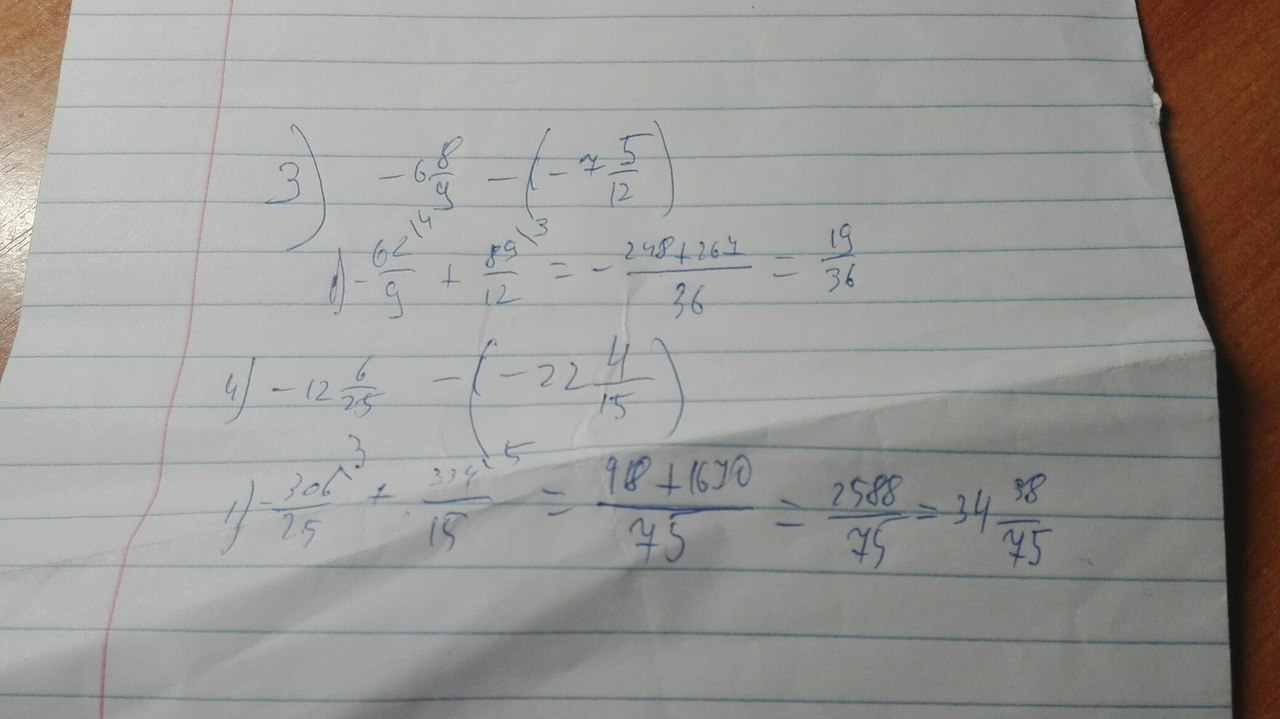 3) -6 8/9 - (-7 5/12)
1) -62/9 \4 + 89/12 \3 = - 248+267/36 = 19/36
4) -12 6/25 - (-22 4/15)
1) -306/25 \3 + 334/15 \5 = 918+1670/75 = 2588/75 = 34 38/75